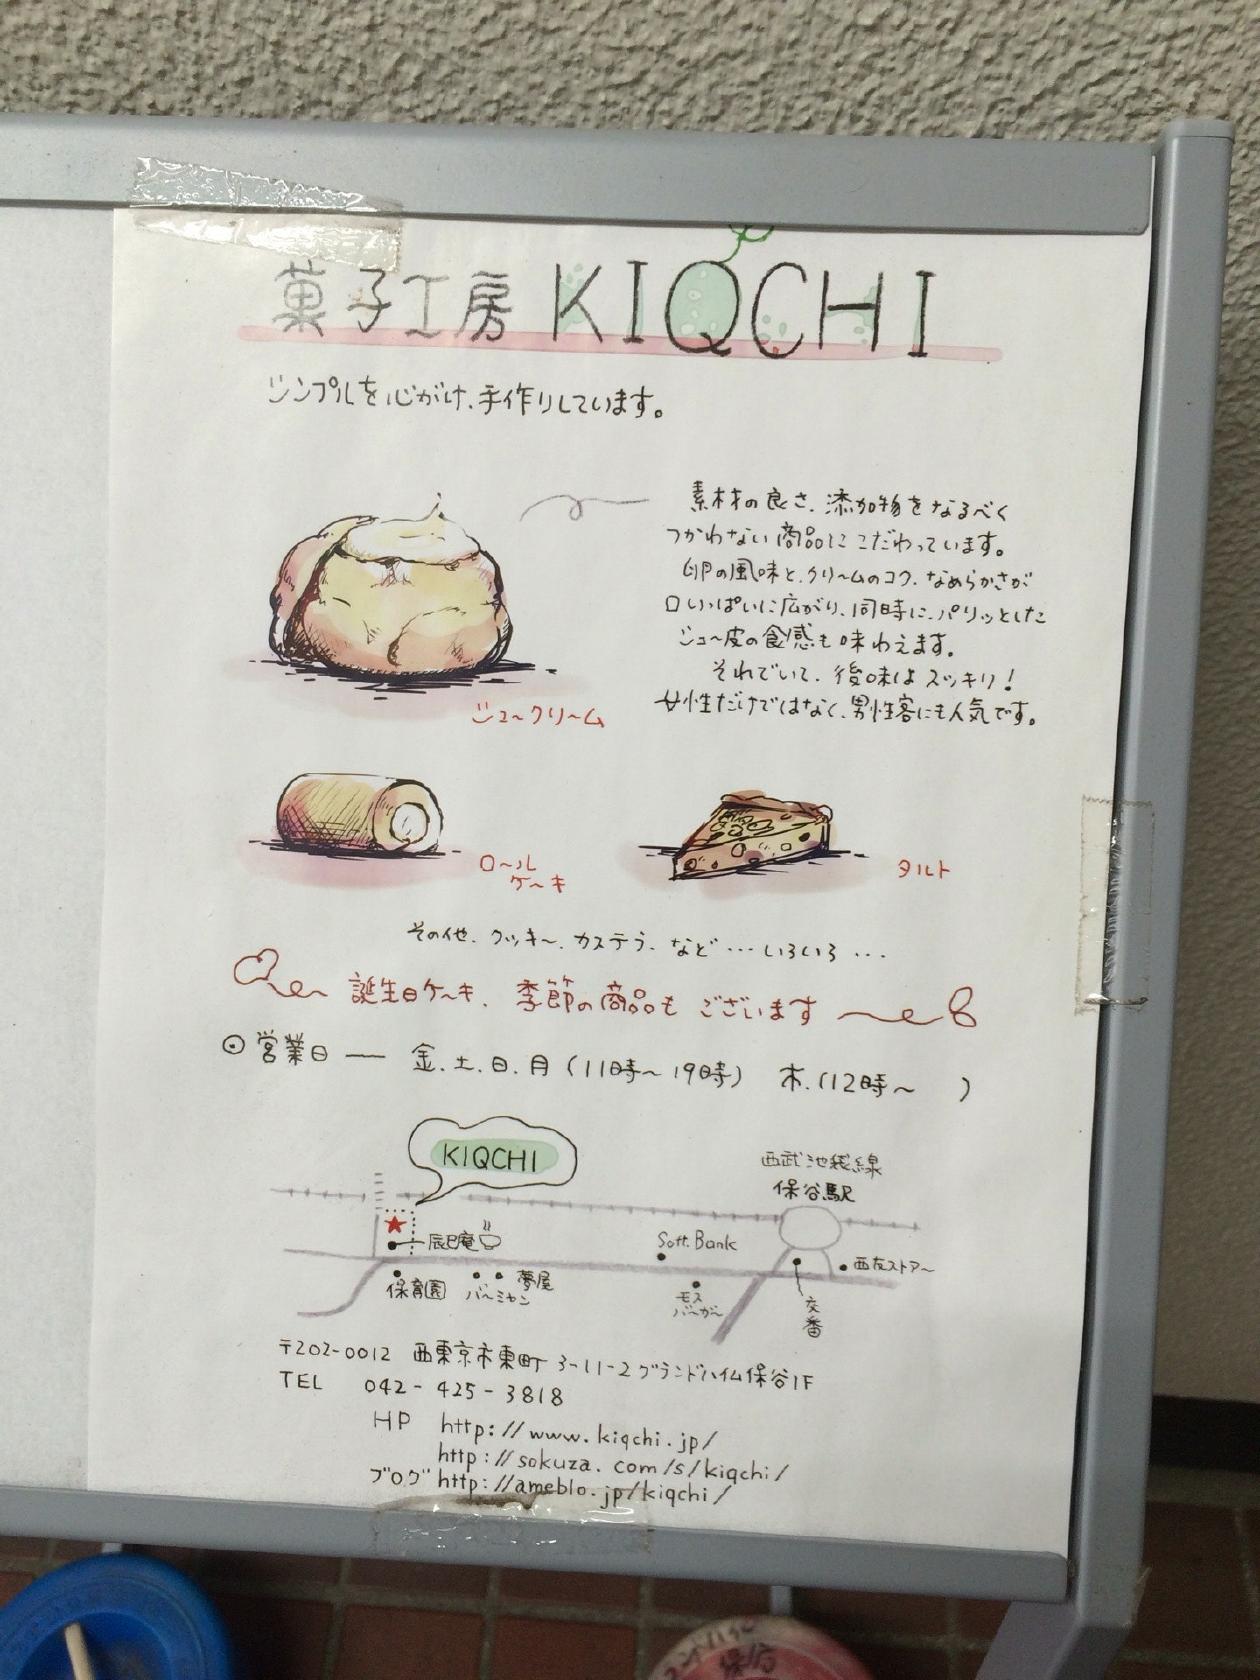 菓子工房 KIQCHI
シンプルを心がけ、手作りしています。
素材の良さ、添加物をなるべく
つかわない商品にこだわっています。
卵の風味と、クリームのコク、なめらかさが
口いっぱいに広がり、同時に、パリッとした
シュー皮の食感も味わえます。
それでいて、後味はスッキリ!
女性だけではなく、男性客にも人気です。
シュークリーム
ロール
ケーキ
タルト
その他、クッキー、カステラ、など…いろいろ…
誕生日ケーキ、季節の商品もございます
◎営業日 ― 金.土.日.月 (11時〜19時) 木.(12時〜 )
KIQCHI
西武池袋線
保谷駅
辰巳庵
Soft.Bank
西友ストアー
保育園
バーミヤン
夢屋
モス
バーガー
交番
〒202-0012 西東京市東町 3-11-2 グランドハイム保谷1F
TEL 042-425-3818
HP http://www.kiqchi.jp/
http://sokuza.com/s/kiqchi/
ブログ http://ameblo.jp/kiqchi/